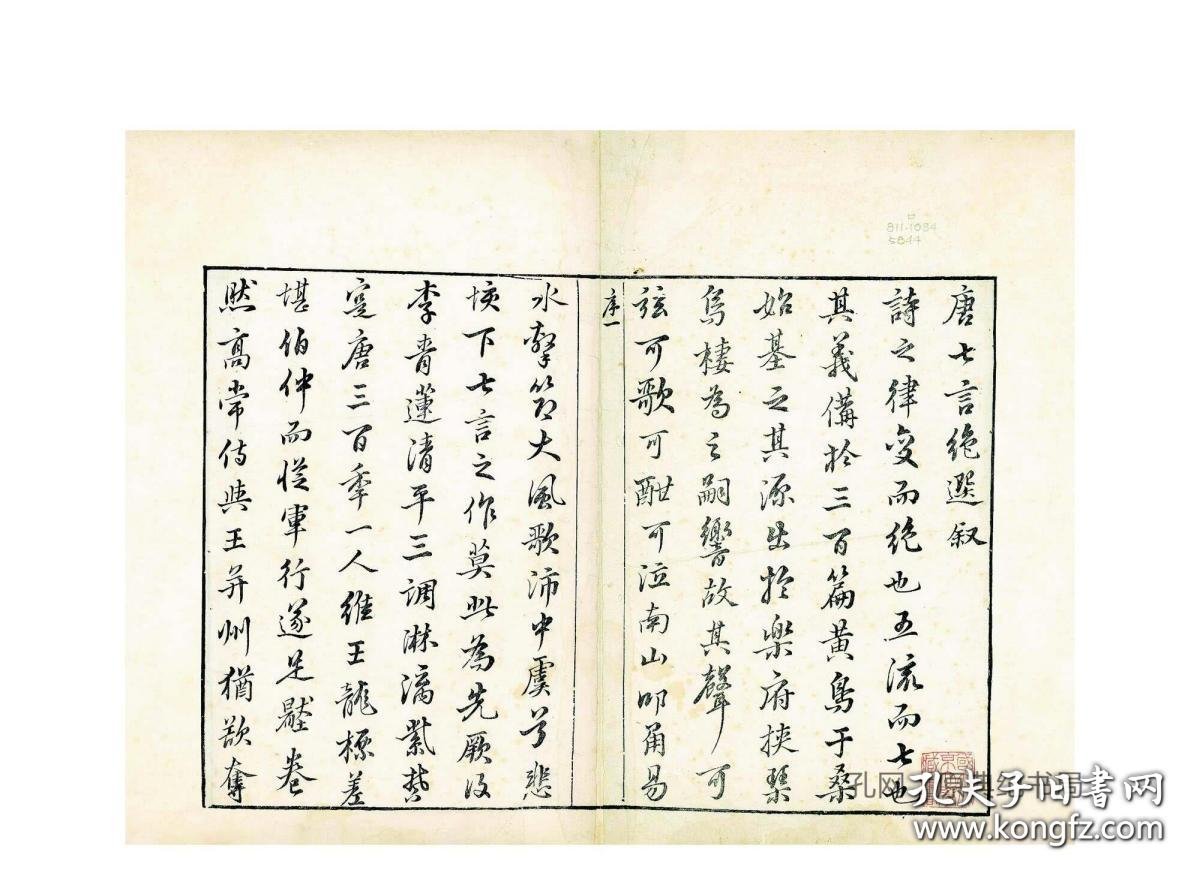 唐七言絶選叙
詩之律變而絶也五流而七也
其義備於三百篇黃鳥于桑
始基之其源出於樂府挾琴
烏棲為之嗣響故其聲可
弦可歌可酣可泣南山叩角易
序一
水擊筑大風歌沛中虞兮悲
垓下七言之作莫此為先厥後
李青蓮清平三調淋漓紫禁
寔唐三百季一人維王龍標差
堪伯仲而從軍行遂足壓卷
然高常侍與王并州猶欲奪
811.1084
5844
孔夫子旧书网
www.kongfz.com